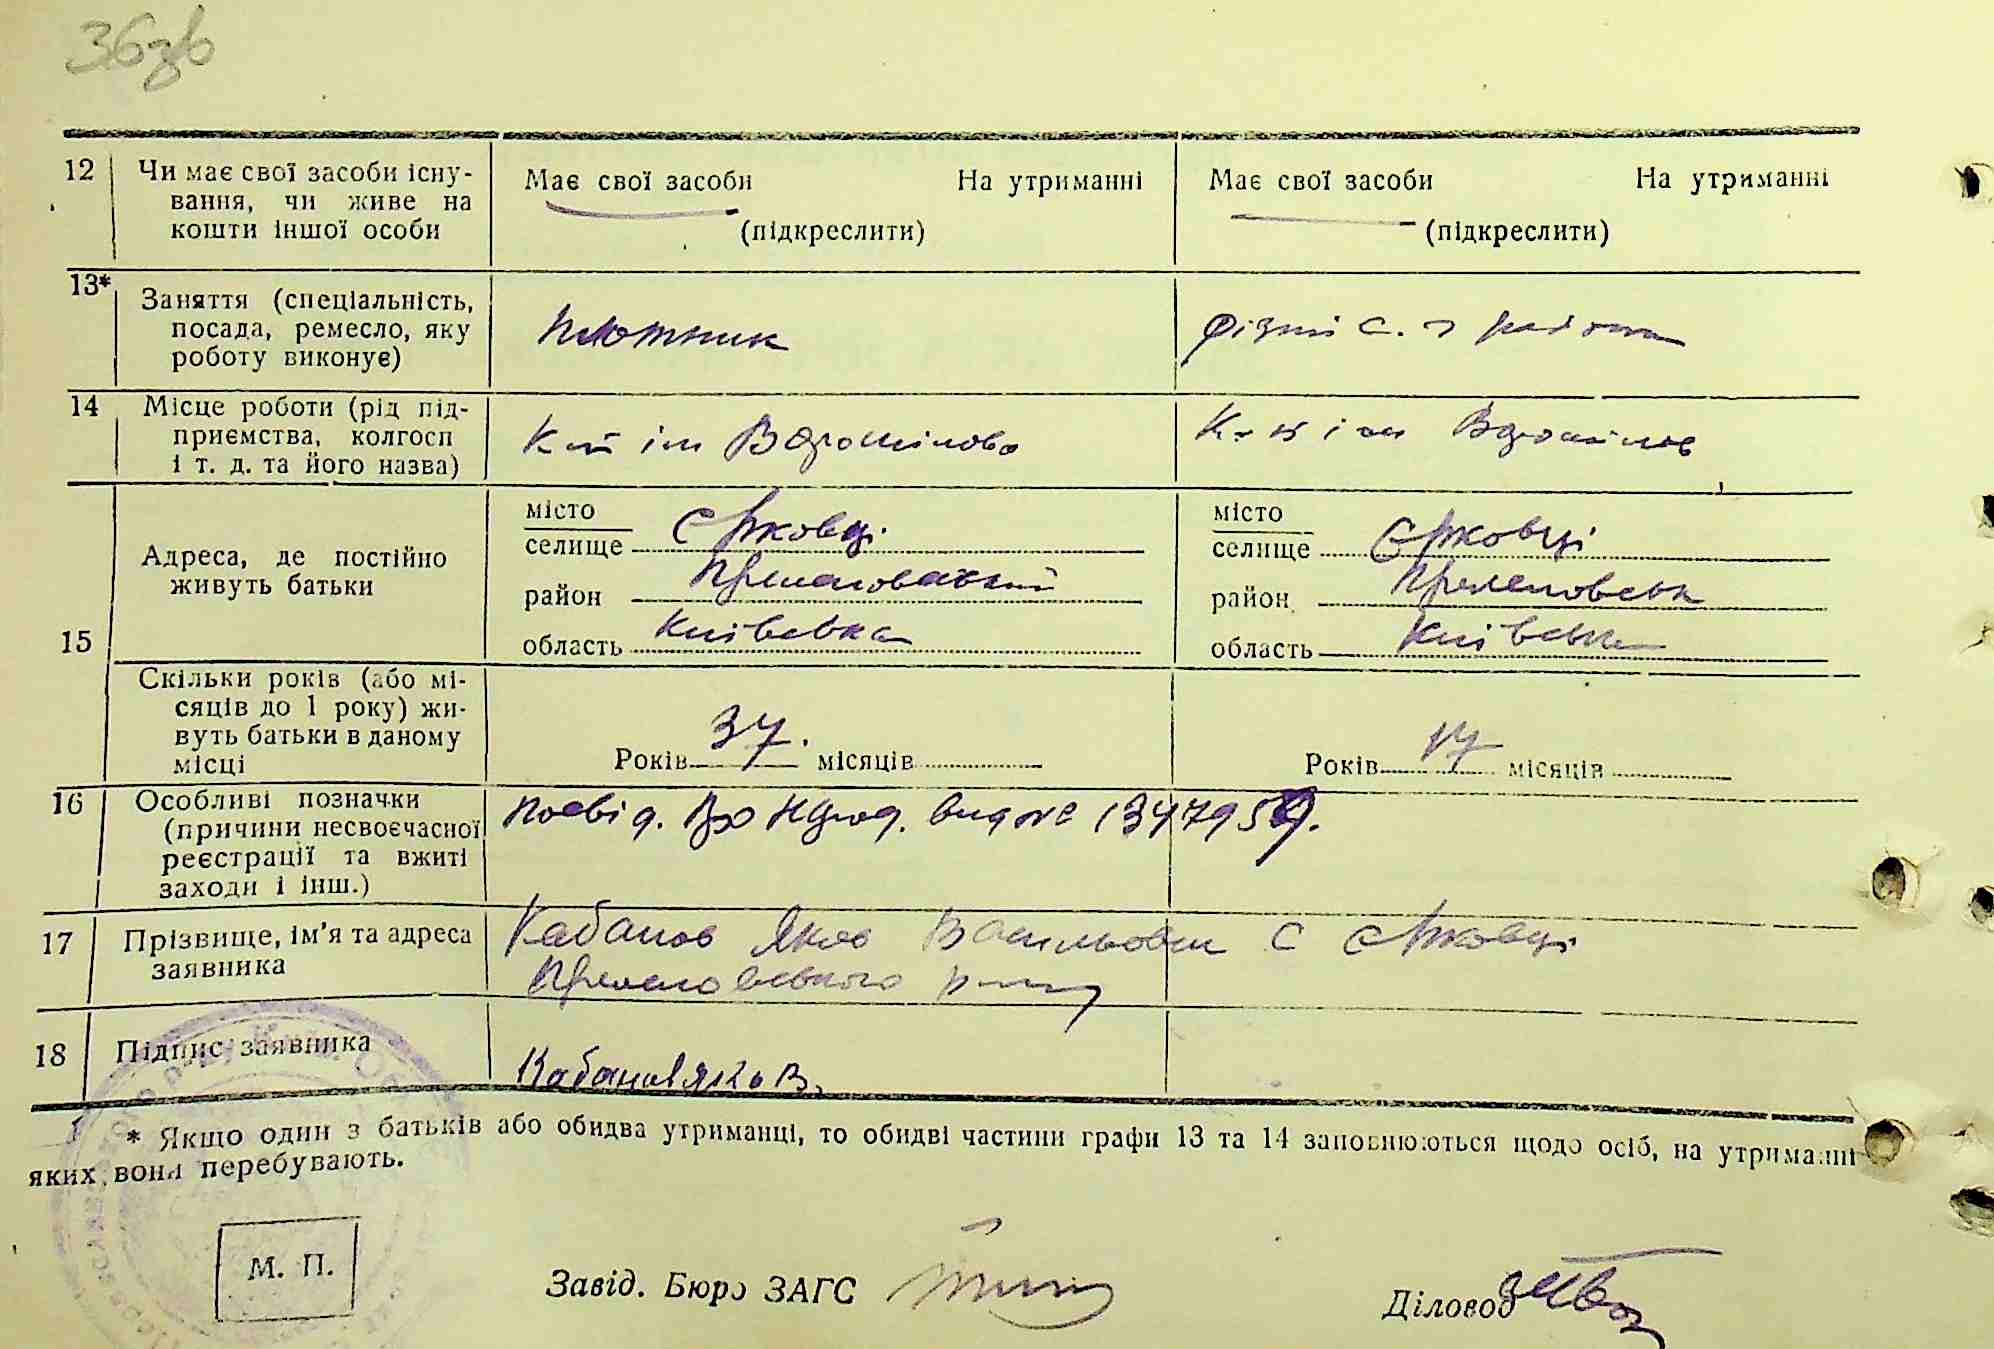 36зв
12 Чи має свої засоби існу-
вання, чи живе на
кошти іншої особи
Має свої засоби На утриманні
(підкреслити)
Має свої засоби На утриманні
(підкреслити)
13* Заняття (спеціальність,
посада, ремесло, яку
роботу виконує)
Плотник
фізні с. г робота
14 Місце роботи (рід під-
приємства, колгосп
і т. д. та його назва)
ім Ворошилова
ім Ворошилов
15 Адреса, де постійно
живуть батьки
місто
селище Єрковці
район
область Київська
місто
селище Єрковці
район
область Київська
Скільки років (або мі-
сяців до 1 року) жи-
вуть батьки в даному
місці
Років 37. місяців
Років 17 місяців
16 Особливі позначки
(причини несвоєчасної
реєстрації та вжиті
заходи і інш.)
Посвід. видане
17 Прізвище, ім'я та адреса
заявника
Кабанов Яков Васильович с Єрковці
18 Підпис заявника
Кабанов Яков В.
* Якщо один з батьків або обидва утриманці, то обидві частини графи 13 та 14 заповнюються щодо осіб, на утриманні
яких вони перебувають.
М. П.
Завід. Бюро ЗАГС
Діловод